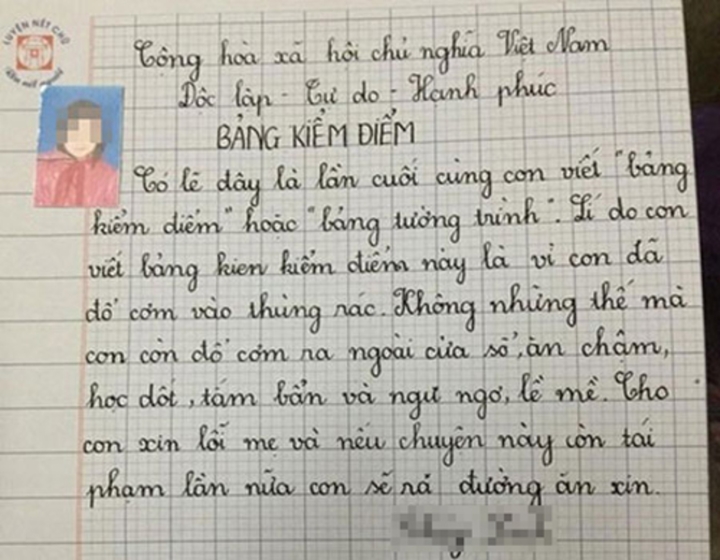 LUYỆN NÉT CHỮ
Cộng hoà xã hội chủ nghĩa Việt Nam
Độc lập - Tự do - Hạnh phúc
BẢNG KIỂM ĐIỂM
Có lẽ đây là lần cuối cùng con viết "bảng
kiểm điểm" hoặc "bảng tường trình". Lí do con
viết bảng kien kiểm điểm này là vì con đã
đổ cơm vào thùng rác. Không những thế mà
con còn đổ cơm ra ngoài cửa sổ, ăn chậm,
học dốt, tắm bẩn và ngu ngơ, lề mề. Cho
con xin lỗi mẹ và nếu chuyện này còn tái
phạm lần nữa con sẽ rả đường ăn xin.